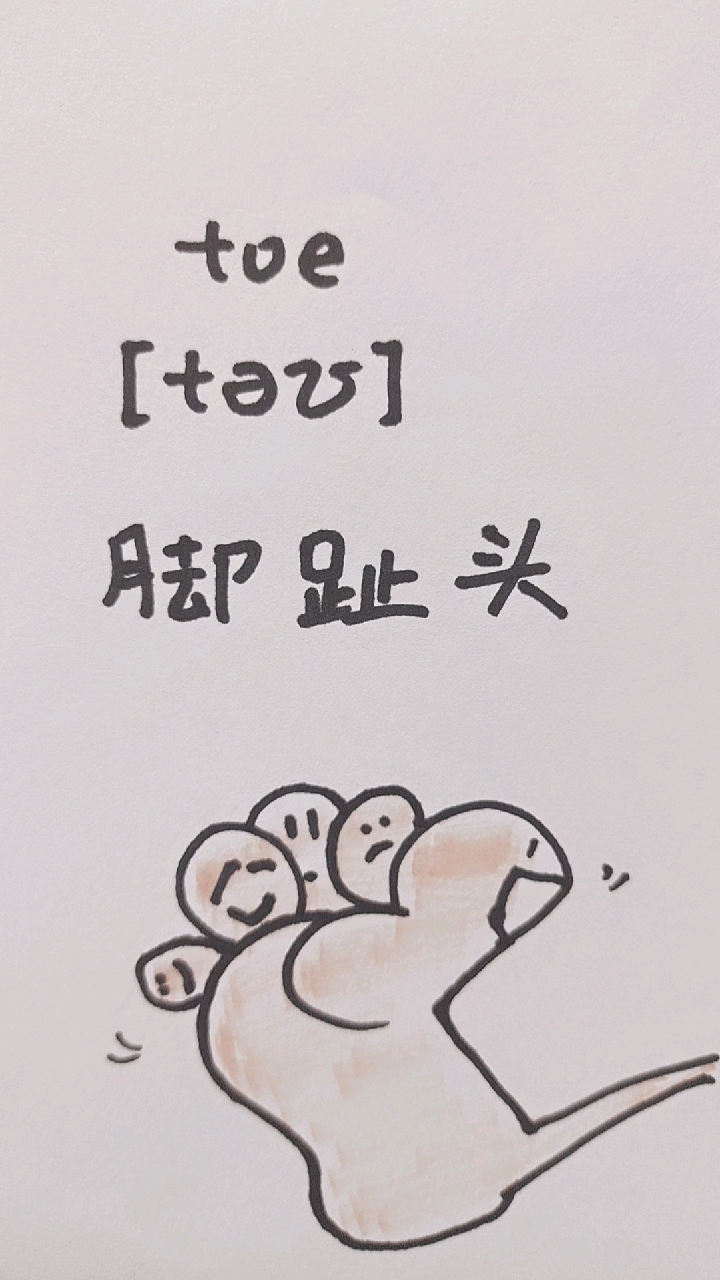 toe
[təʊ]
脚趾头